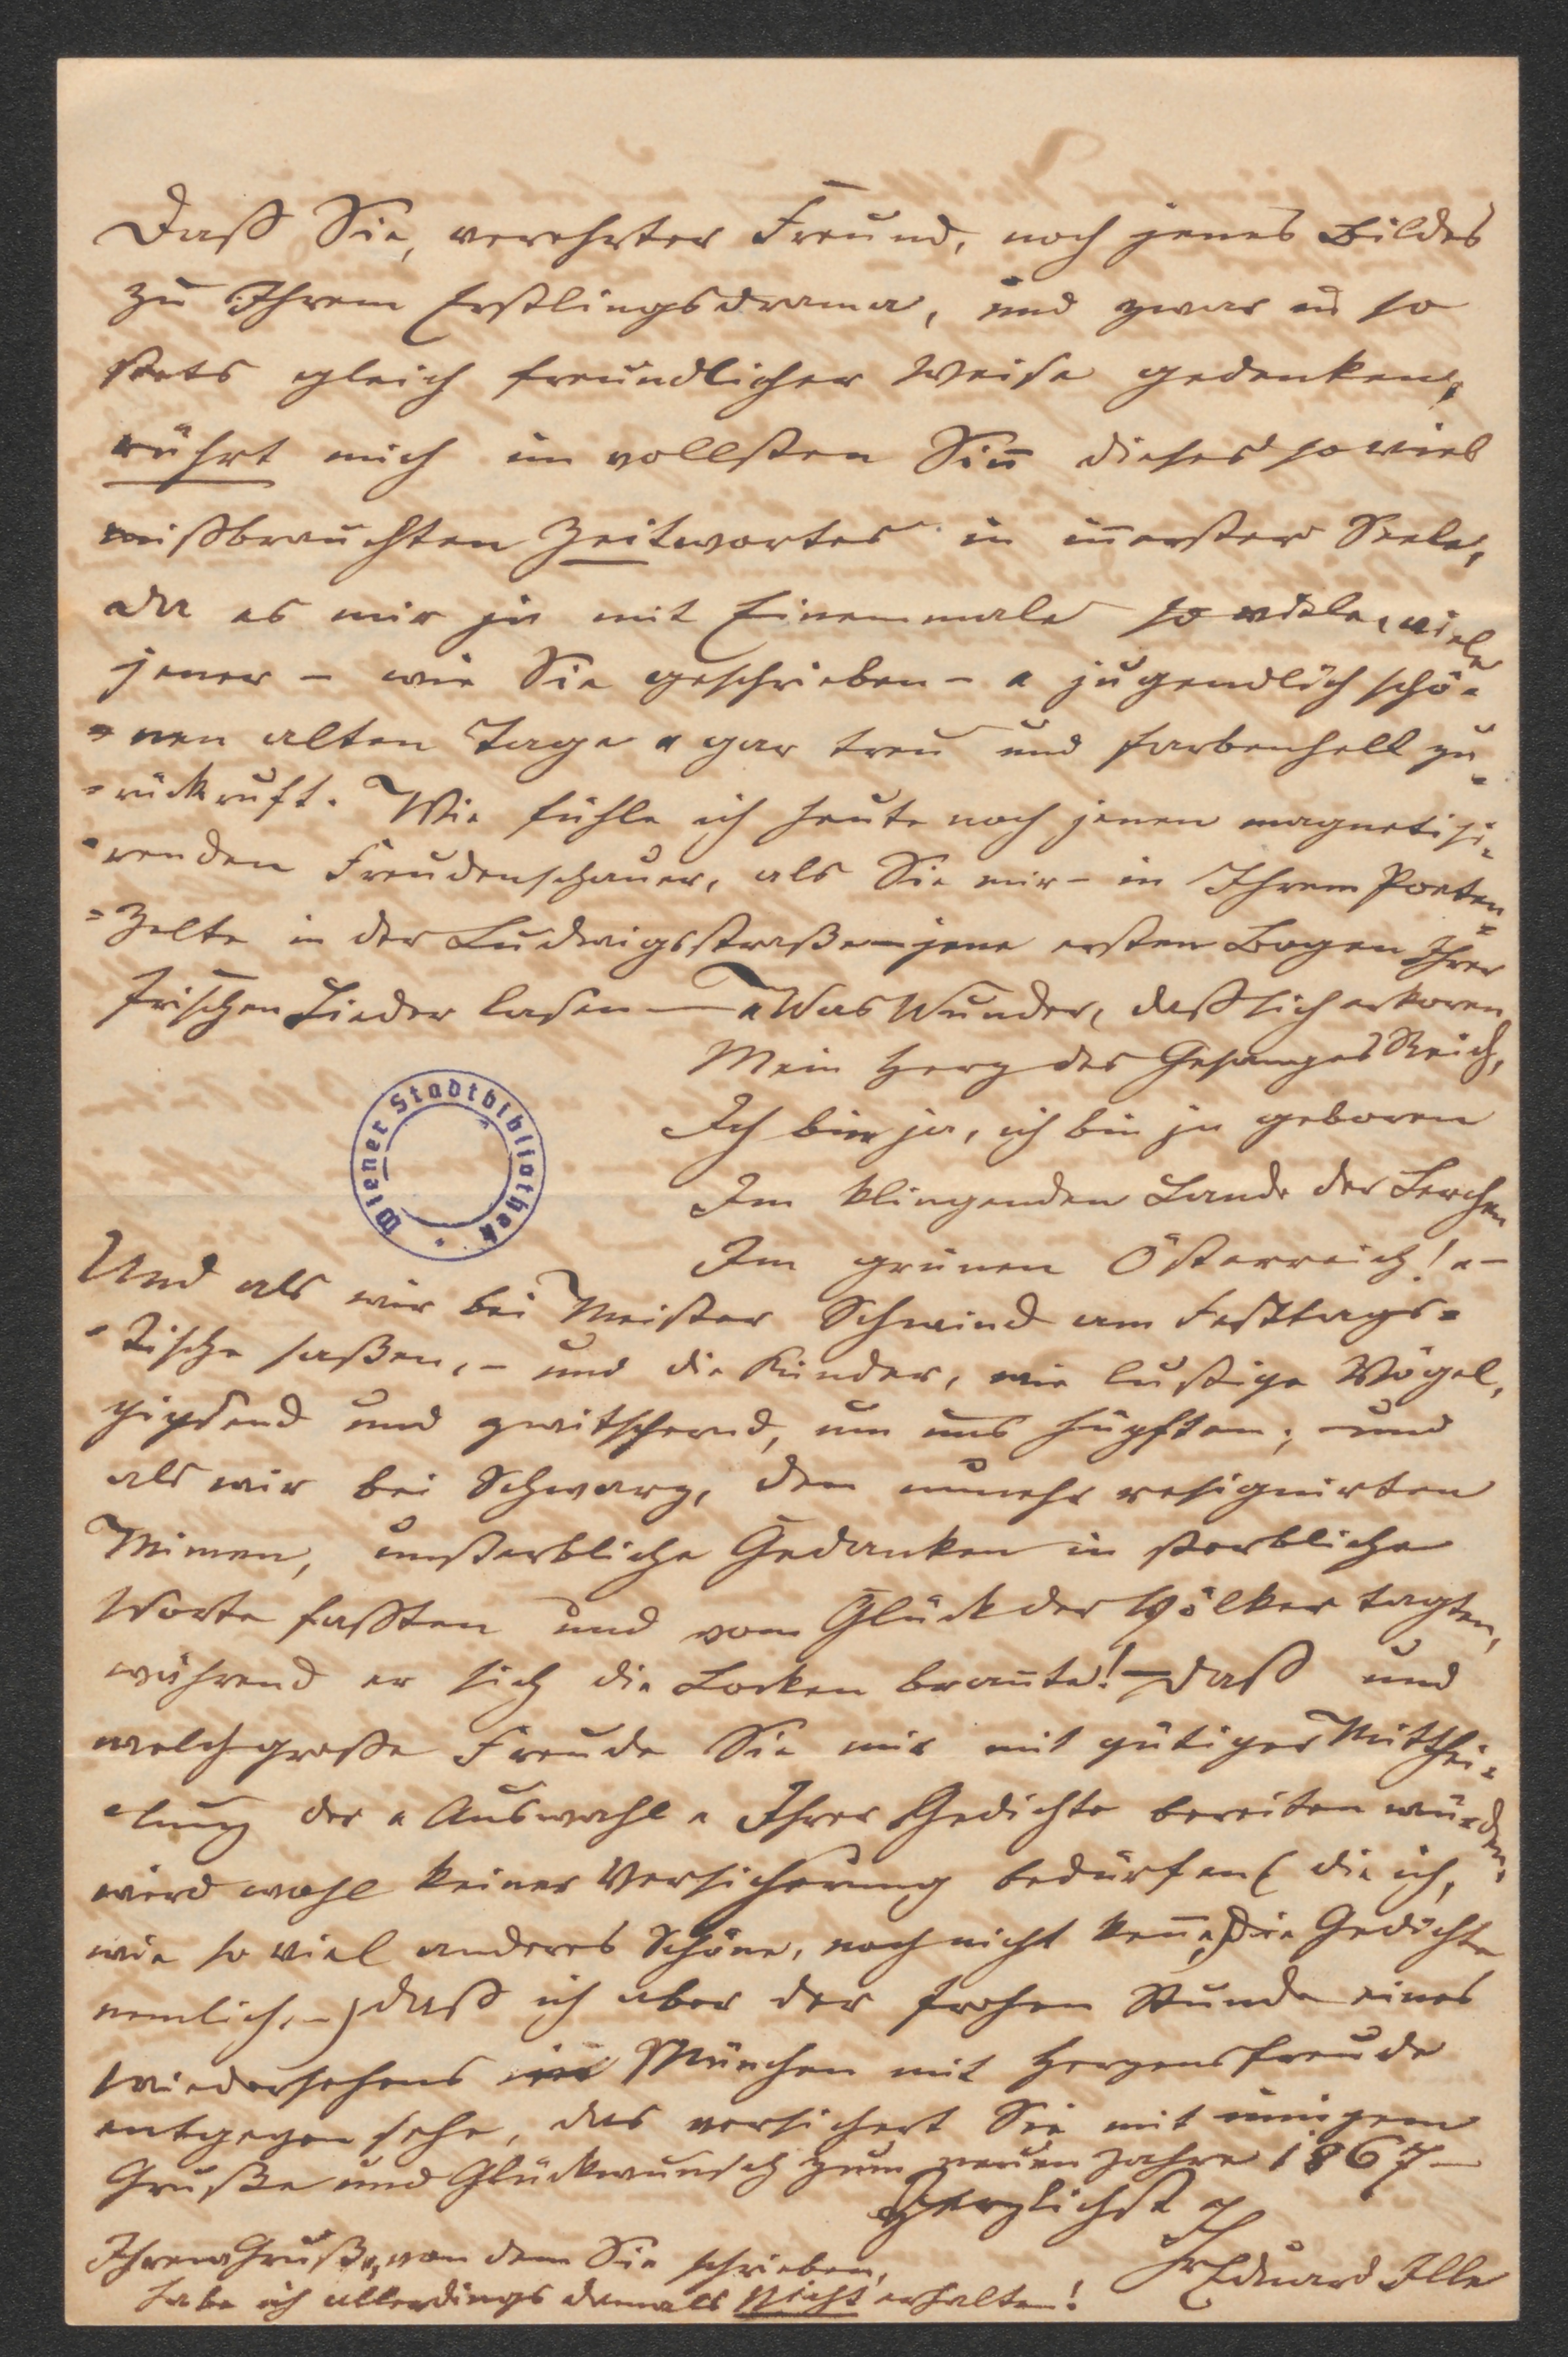 Daß Sie, verehrter Freund, noch jenes Bildes
zu Ihrem Erstlingsdrama, und zwar in so
stets gleich freundlicher Weise gedenken,
rührt mich im vollsten Sinn̄ dieses soviel
mißbrauchten Zeitwortes in in̄erster Seele,
da es mir ja mit Einemmale so viele, viele
jener – wie Sie geschrieben – "jugendlich schö-
=nen alten Tage" gar treu und farbenhell zu-
=rückruft. Wie fühle ich heute noch jenen magnetisi-
=renden Freudenschauer, als Sie mir – in Ihrem Poeten-
=Zelte in der Ludwigsstraße – jene ersten Bogen Ihrer
frischen Lieder lasen – "Was Wunder, daß sich erkoren
Mein Herz des Gesanges Reich,
Ich bin ja, ich bin ja geboren
Im klingenden Lande der Lerchen
Im grünen Österreich!" –
Wiener Stadtbibliothek
Und als wir bei Meister Schwind am Festtags-
=Tische saßen, – und die Kinder, wie lustige Vögel,
piepsend und zwitschernd, um uns hüpften; und
als wir bei Schwarz, dem nunmehr resignirten
Mimen, unsterbliche Gedanken in sterbliche
Worte faßten und vom Glück der Völker tagten,
während er sich die Locken bran̄te! – Daß und
welch große Freude Sie mir mit gütiger Mitthei-
=lung der "Auswahl" Ihrer Gedichte bereiten würden,
wird wohl keiner Versicherung bedürfen (die ich,
wie so viel anderes Schöne, noch nicht ken̄e, die Gedichte
nemlich, –) daß ich aber der frohen Stunde eines
Wiedersehens in München mit Herzensfreude
entgegen sehe, das versichert Sie mit innigem
Gruße und Glückwunsch zum neuen Jahre 1867 –
Herzlichst
Ihr Eduard Ille
Ihren Gruß, von dem Sie schrieben,
habe ich allerdings damals nicht erhalten!